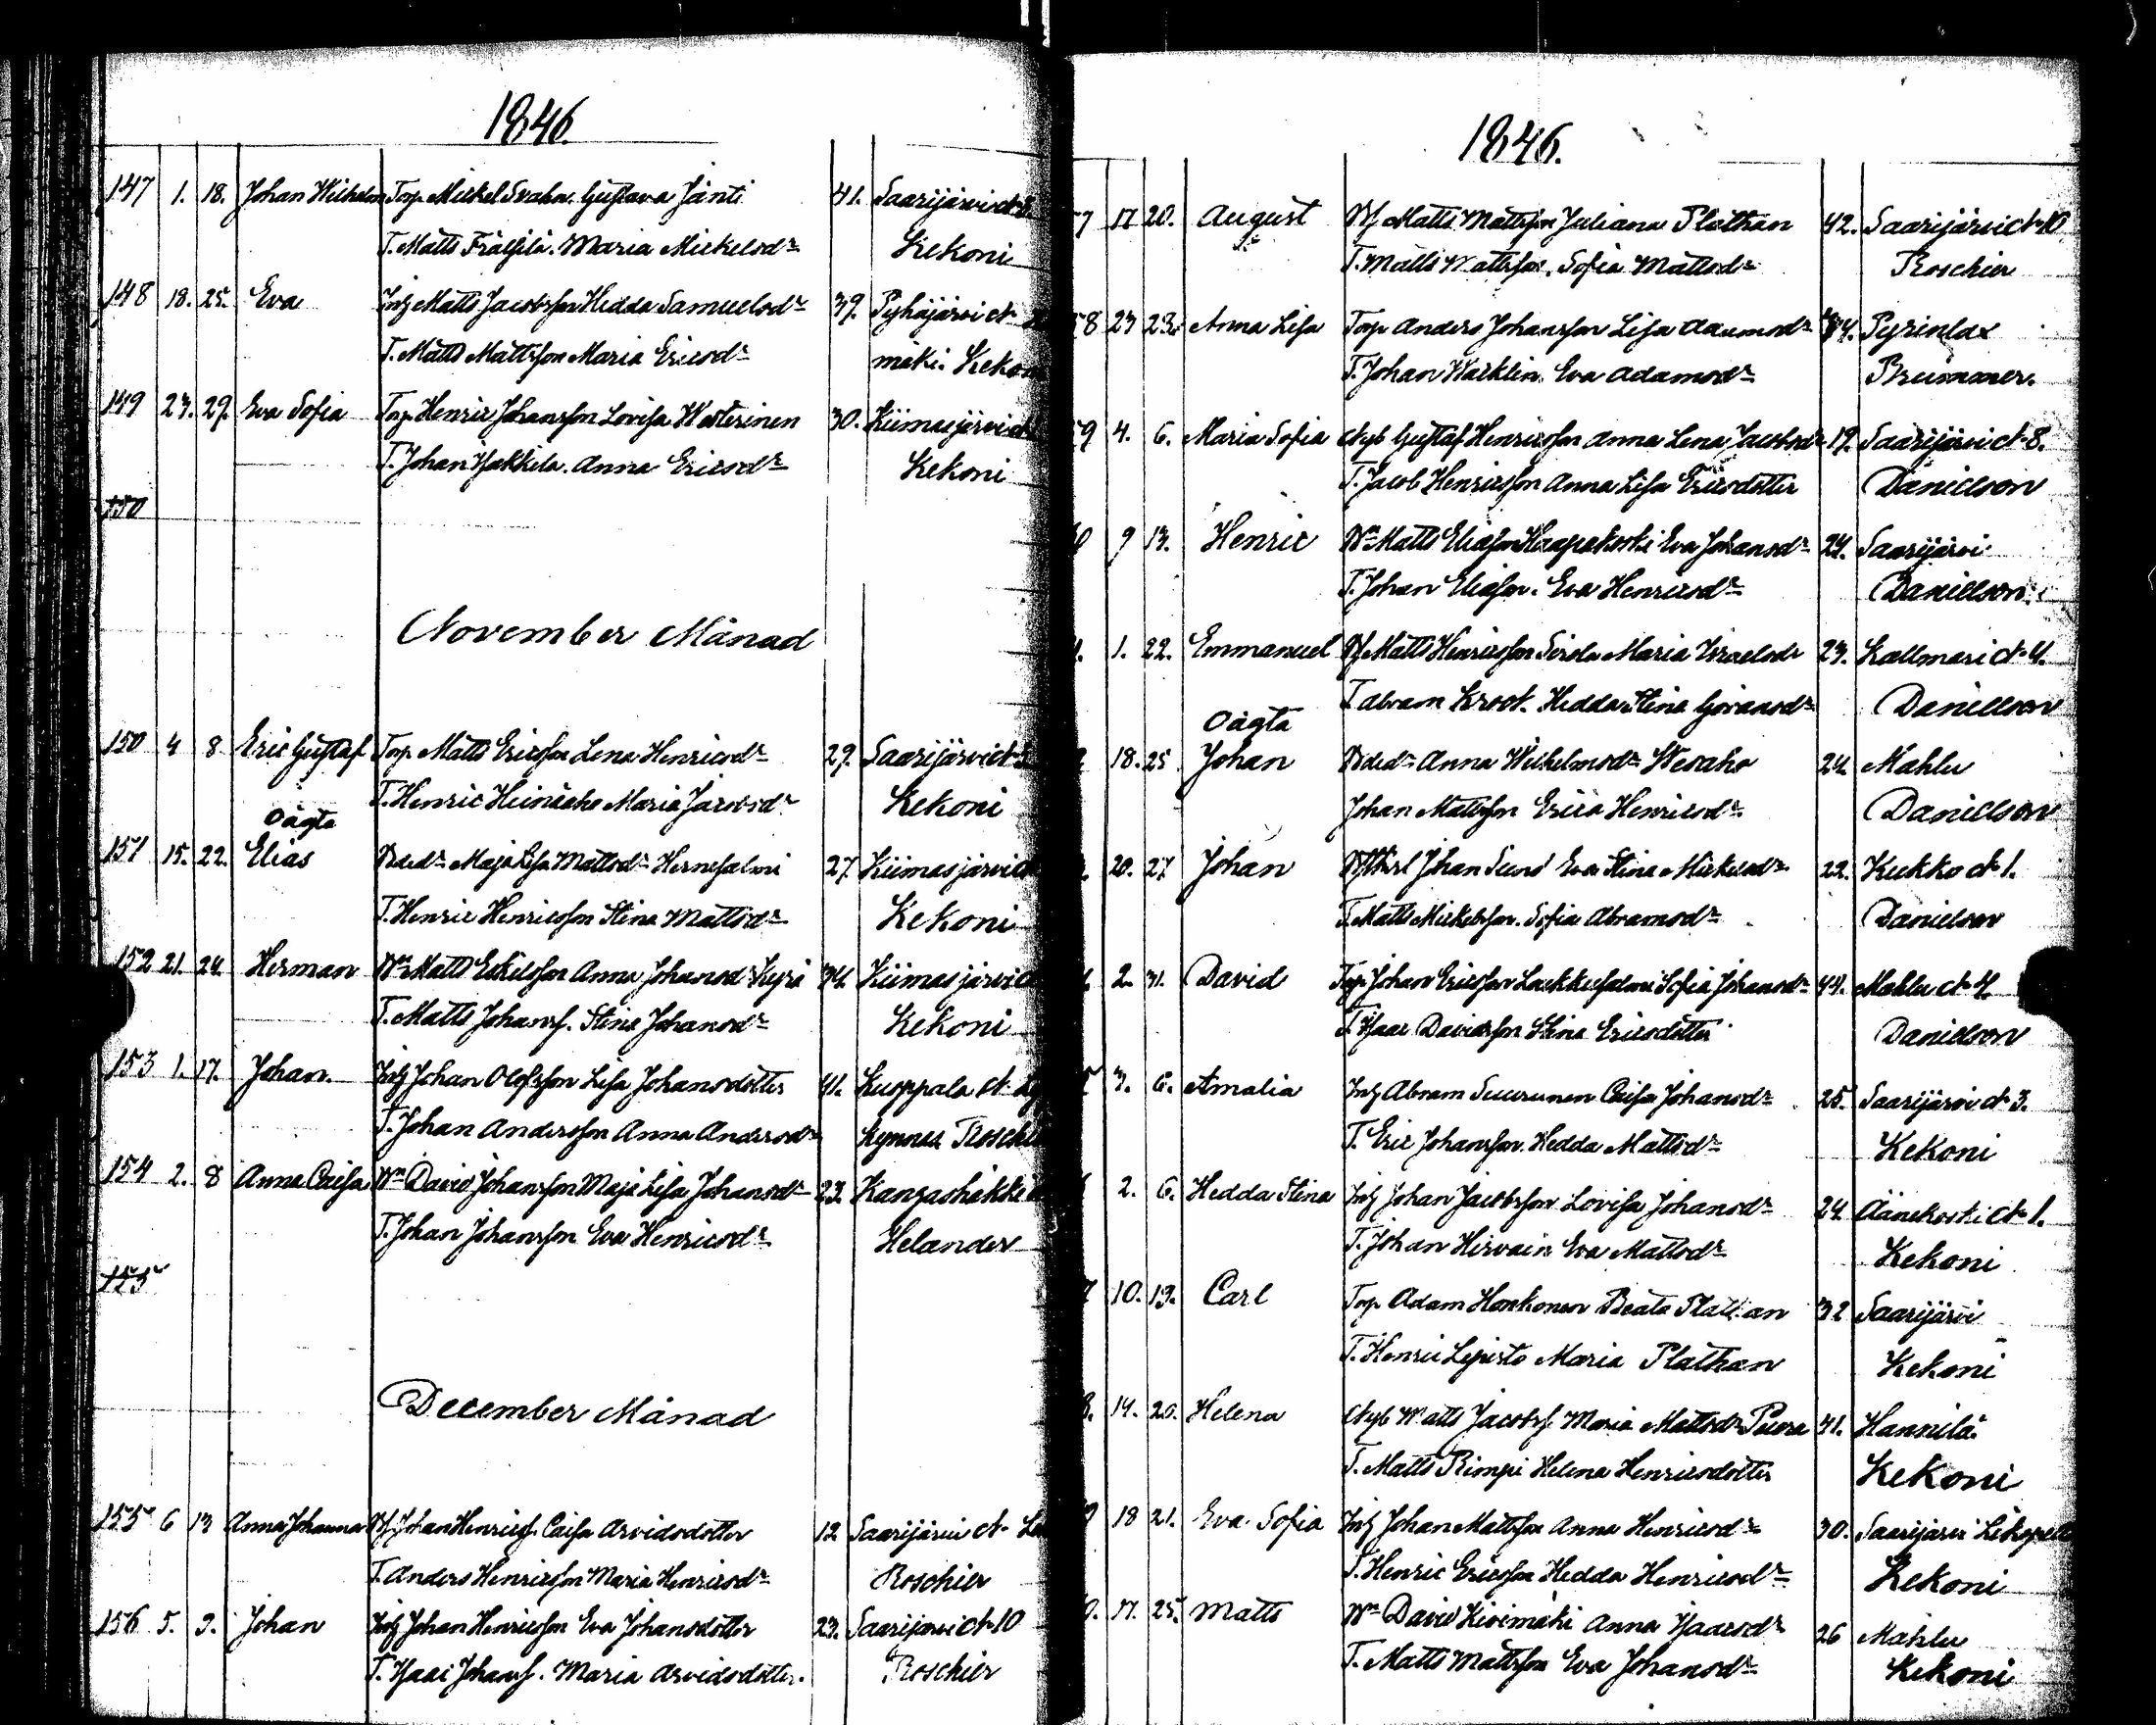 1846.
147 1. 18. Johan Wilhelm Torp. Mickel Svahn. Gustava Jänti 41. Saarijärvi
T. Matts Maria Mickelsdr Kekoni
148 18. 25. Eva Inh Matts Jacobsson Hedda Samuelsdr 39. Pyhäjärvi
T. Matts Mattsson Maria Ericsdr mäki. Kekoni
149 23. 29. Eva Sofia Torp Henric Johansson Lovisa Westerinen 30. Kiimasjärvi
T. Johan Hakkila. Anna Ericsdr Kekoni
150
November Månad
150 4 8 Eric Gustaf Torp. Matts Ericsson Lena Henricsdr 29. Saarijärvi
T. Henric Heinäaho Maria Kekoni
Oägta
151 15. 22. Elias Maja Lisa Mattsdr Hernesalmi 27. Kiimasjärvi
T. Henric Henricsson Stina Mattsdr Kekoni
152 21. 24. Herman Matts Eskilsson Anna Johansdr 34. Kiimasjärvi
T. Matts Johanss. Stina Johansdr Kekoni
153 1. 17. Johan. Inh Johan Olofsson Lisa Johansdotter 41. Kuoppala
T. Johan Andersson Anna Andersdr Roschier
154 2. 8 Anna Caisa David Johansson Maja Lisa Johansdr 23. Kangashäkki
T. Johan Johansson Eva Henricsdr Helander
155
December Månad
155 6 13 Anna Johanna Johan Henricss. Caisa Arvidsdotter 12 Saarijärvi
T. Anders Henricsson Maria Henricsdr Roschier
156 5. 9. Johan Inh Johan Henricsson Eva Johansdotter 23. Saarijärvi N 10
T. Isaac Johanss. Maria Arvidsdotter. Roschier
1846.
7 17 20. August Matts Mattsson Juliana Plathan 42. Saarijärvi N 10
T. Matts Mattsson. Sofia Mattsdr Roschier
58 23 23. Anna Lisa Torp Anders Johansson Lisa Adamsdr Pyrinlax
T. Johan Eva Adamsdr Brummer.
59 4. 6. Maria Sofia Nyb Gustaf Henricsson Anna Lena Jacobsdr 19. Saarijärvi N 8.
T. Jacob Henricsson Anna Lisa Ericsdotter Danielson
9 13. Henric Matts Eliasson Haapakoski Eva Johansdr 24. Saarijärvi
T. Johan Eliasson. Eva Henricsdr Danielson.
1. 22. Emmanuel Matts Henricsson Maria Israelsdr 23. Kallmari N 4.
T. Abram Krook. Hedda Stina Göransdr Danielson
Oägta
18. 25 Johan Anna Wilhelmsdr Wesaho 24. Mahlu
Johan Mattsson Erica Henricsdr Danielson
20. 27 Johan Johan Sund Eva Stina Mickelsdr 22. Kukko N 1.
T. Matts Mickelsson. Sofia Abramsdr Danielson
2. 31. David Torp Johan Ericsson Sofia Johansdr 44. Mahlu N 4
T. Isaac Davidsson Stina Ericsdotter Danielson
3. 6. Amalia Inh Abram Suurunen Caisa Johansdr 25. Saarijärvi N 3.
T. Eric Johansson. Hedda Mattsdr Kekoni
2. 6. Hedda Stina Inh Johan Jacobsson Lovisa Johansdr 24 Äänekoski N 1.
T. Johan Eva Mattsdr Kekoni
10. 13. Carl Torp Adam Honkonen Beata Plathan 32 Saarijärvi
T. Henric Lepistö Maria Plathan Kekoni
8. 14. 20. Helena Nyb Matts Jacobss. Maria Mattsdr Peura 41. Hannila
T. Matts Rimpi Helena Henricsdotter Kekoni
9 18 21. Eva Sofia Inh Johan Mattsson Anna Henricsdr 30. Saarijärvi
T. Henric Ericsson Hedda Henricsdr Kekoni
17. 25. Matts David Kivimäki Anna Isaacsdr 26 Mahlu
T. Matts Mattsson Eva Johansdr Kekoni